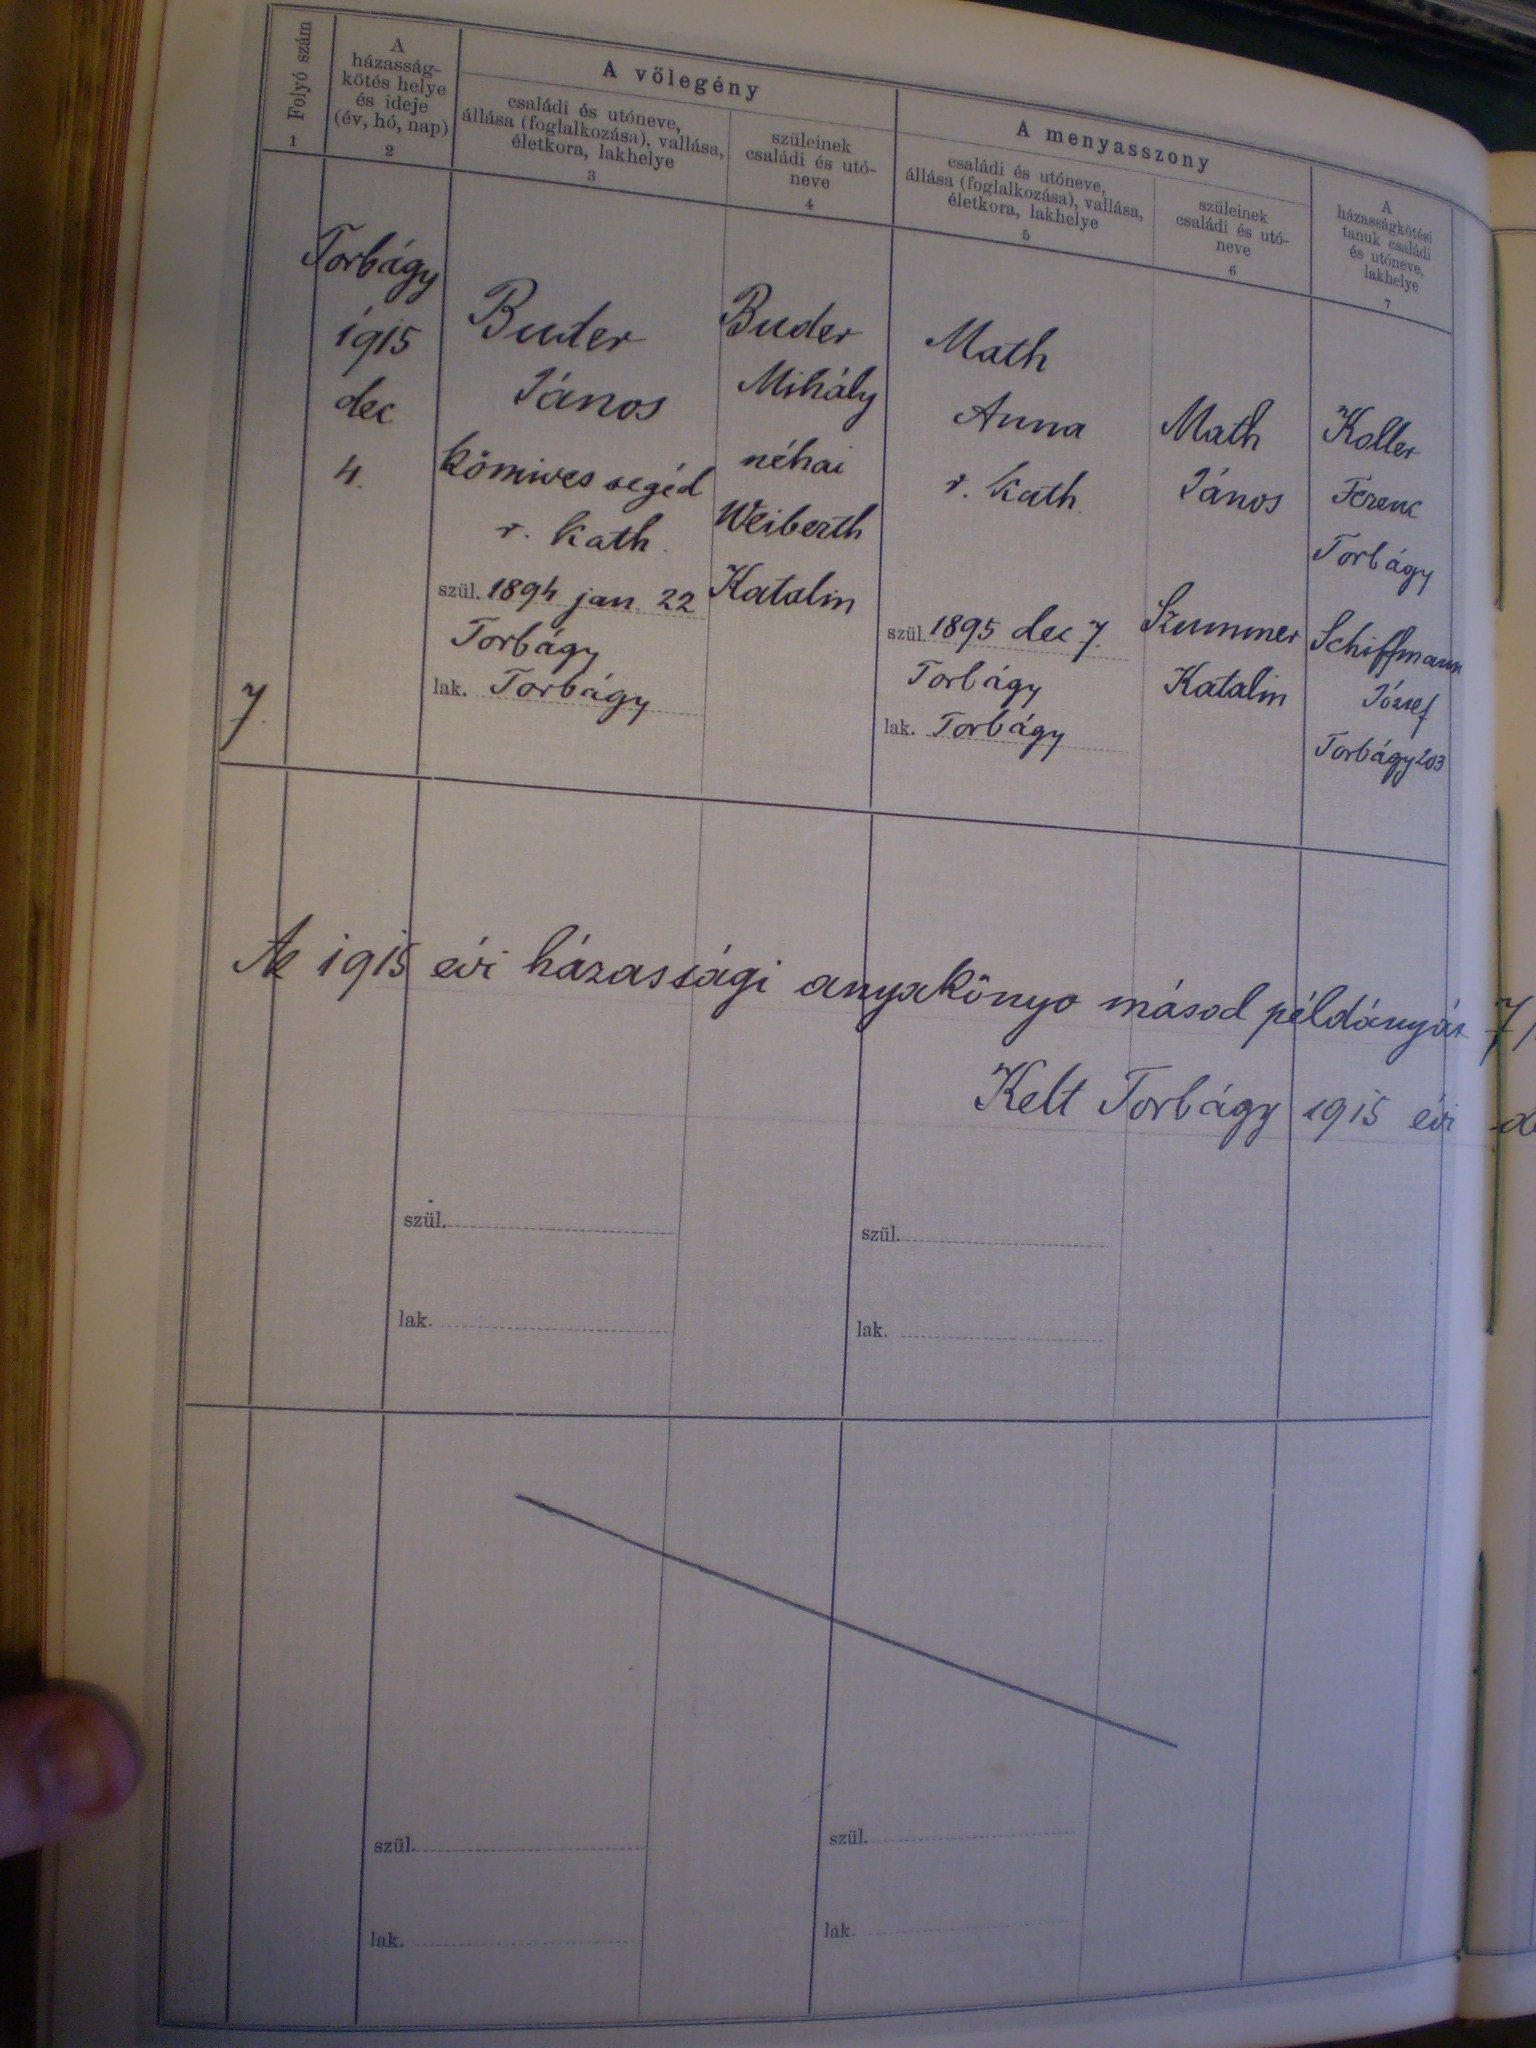 Folyó szám
1
A
házasság-
kötés helye
és ideje
(év, hó, nap)
2
A vőlegény
családi és utóneve,
állása (foglalkozása), vallása,
életkora, lakhelye
3
szüleinek
családi és utó-
neve
4
A menyasszony
családi és utóneve,
állása (foglalkozása), vallása,
életkora, lakhelye
5
szüleinek
családi és utó-
neve
6
A
házasságkötési
tanuk családi
és utóneve,
lakhelye
7
7.
Torbágy
1915
dec
4.
Buder
János
kőmives segéd
r. kath.
szül. 1894 jan. 22
Torbágy
lak. Torbágy
Buder
Mihály
néhai
Weiberth
Katalin
Math
Anna
r. kath.
szül. 1895 dec 7.
Torbágy
lak. Torbágy
Math
János
Szummer
Katalin
Koller
Ferenc
Torbágy
Schiffmann
József
Torbágy 203
Az 1915 évi házassági anyakönyv másod példányát 7/
Kelt Torbágy 1915 évi de
szül.
szül.
lak.
lak.
szül.
szül.
lak.
lak.